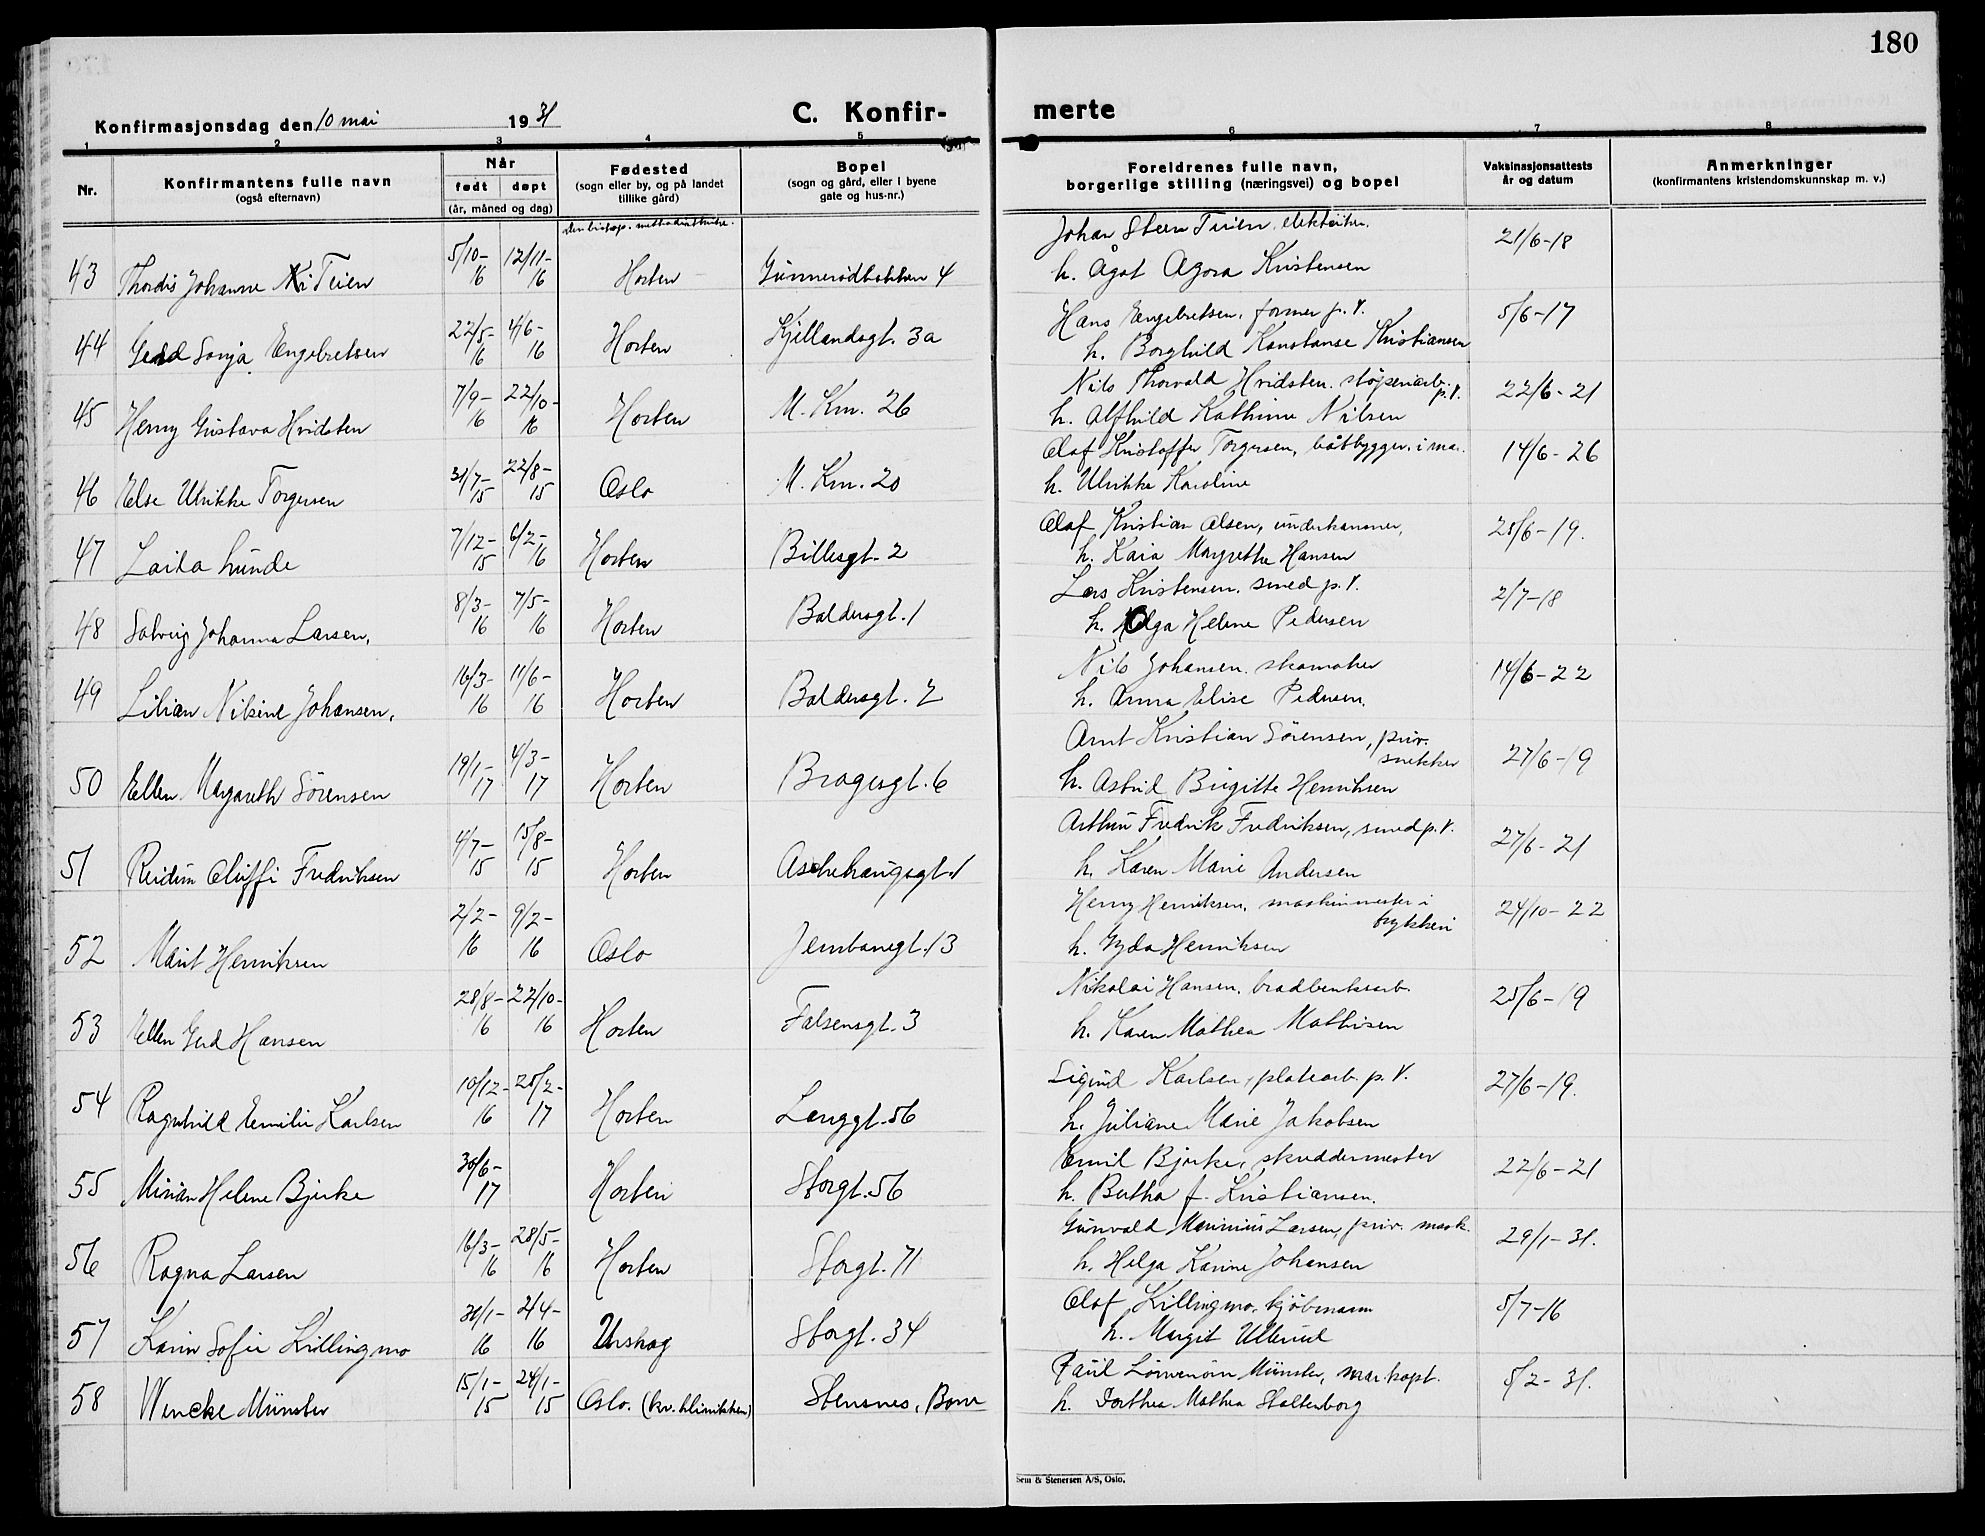 180
Konfirmasjonsdag den 10 mai 1931
C. Konfirmerte
1 2 3 4 5 6 7 8
Nr.
Konfirmantens fulle navn
(også efternavn)
Når
født døpt
(år, måned og dag)
Fødested
(sogn eller by, og på landet
tillike gård)
Bopel
(sogn og gård, eller i byene
gate og hus-nr.)
Foreldrenes fulle navn,
borgerlige stilling (næringsvei) og bopel
Vaksinasjonsattests
år og datum
Anmerkninger
(konfirmantens kristendomskunnskap m. v.)
43 Thordis Johanne Teien 5/10-16 12/11-16 Horten Gunnerødbakken 4
Johan Steen Teien
h. Ågot Agora Kristensen 21/6-18
44 Gerd Sonja Engebretsen 22/5-16 4/6-16 Horten Kjellandsgt. 3a
Hans Engebretsen, former p. V.
h. Borghild Konstanse Kristiansen 5/6-17
45 Henny Gustava Hvidsten 7/9-16 22/10-16 Horten M. Km. 26
Nils Thorvald Hvidsten, støperiarb. p. V.
h. Alfhild Kathinne Nilsen 22/6-21
46 Else Ulrikke Torgersen 31/7-15 22/8-15 Oslo M. Km. 20
Olaf Kristoffer Torgersen, båtbygger i mar.
h. Ulrikke Karoline 14/6-26
47 Laila Lunde 7/12-15 6/2-16 Horten Billesgt. 2
Olaf Kristian Olsen, underkanoner,
h. Kaia Margrethe Hansen 25/6-19.
48 Solveig Johanna Larsen, 8/3-16 7/5-16 Horten Baldersgt. 1
Lars Kristensen, smed p. V.
h. Olga Helene Pedersen 2/7-18
49 Lilian Nilsine Johansen, 16/3-16 11/6-16 Horten Baldersgt. 7
Nils Johansen, skomaker
h. Anna Elise Pedersen. 14/6-22
50 Ellen Margareth Sörensen 19/1-17 4/3-17 Horten Bragesgt. 6
Arnt Kristian Sörensen, priv. snekker
h. Astrid Birgitte Henriksen 27/6-19
51 Reidun Oluffi Fredriksen 4/7-15 15/8-15 Horten Aschehaugsgt. 1
Arthur Fredrik Fredriksen, smed p. V.
h. Karen Marie Andersen 27/6-21
52 Marit Henriksen 2/2-16 9/2-16 Oslo Jernbanegt. 13
Henry Henriksen, maskinmester i trykkeri
h. Gyda Henriksen 24/10-22
53 Ellen Gerd Hansen 28/8-16 22/10-16 Horten Falsensgt. 3
Nikolai Hansen, bradbenkarb.
h. Karen Mathea Mathisen 25/6-19
54 Ragnhild Emilie Karlsen 10/12-16 25/2-17 Horten Langgt. 56
Sigurd Karlsen, platearb. p. V.
h. Juliane Marie Jakobsen 27/6-19.
55 Mirian Helene Bjerke 30/6-17 Horten Storgt. 56
Emil Bjerke, skreddermester
h. Bertha f. Kristiansen. 22/6-21
56 Ragna Larsen 16/3-16 28/5-16 Horten Storgt. 71
Gunvald Marinius Larsen, priv. mask.
h. Helga Karine Johansen 29/1-31.
57 Karin Sofie Killingmo 30/1-16 2/4-16 Urskog Storgt. 34
Olaf Killingmo, kjöbmann
h. Margit Ullerud 5/7-16
58 Wencke Münster 15/1-15 24/1-15 Oslo. (kv. klinikken) Stensnes, Borre
Paul Münster, mar. kapt.
h. Dorthea Mathea Stoltenborg 5/2-31.
Sem & Stenersen A/S, Oslo.